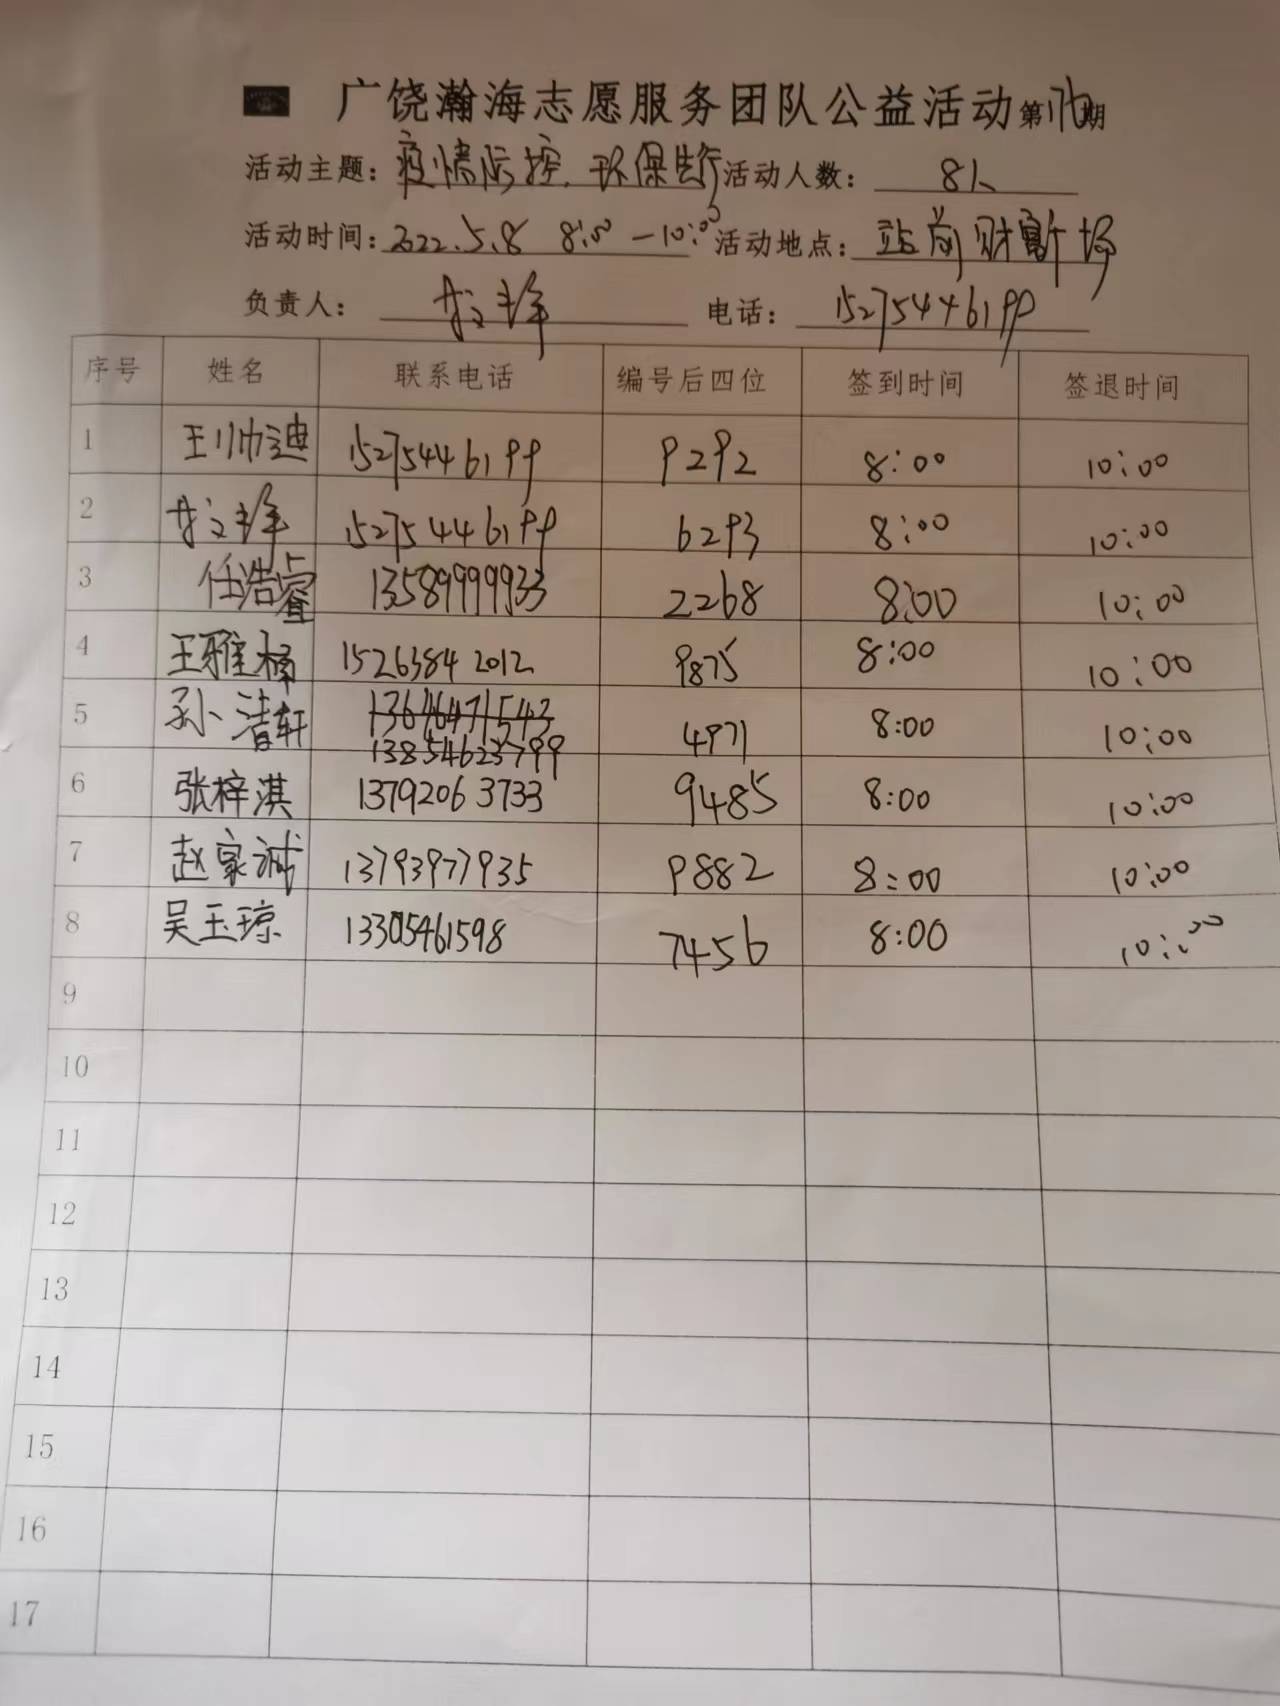 广饶瀚海志愿服务团队公益活动第期
活动主题：疫情防控、环保先行 活动人数：8人
活动时间：2022.5.8 8:00—10:00 活动地点：站前财富广场
负责人： 电话：15275446199
序号 姓名 联系电话 编号后四位 签到时间 签退时间
1 王帅迪 15275446199 9292 8:00 10:00
2 15275446199 6293 8:00 10:00
3 任浩睿 13589999933 2268 8:00 10:00
4 王雅楠 15263842012 9875 8:00 10:00
5 孙清轩 13646471543 4971 8:00 10:00
13854623799
6 张梓淇 13792063733 9485 8:00 10:00
7 赵家诚 13793977935 9882 8:00 10:00
8 吴玉琼 13305461598 7456 8:00 10:00
9
10
11
12
13
14
15
16
17